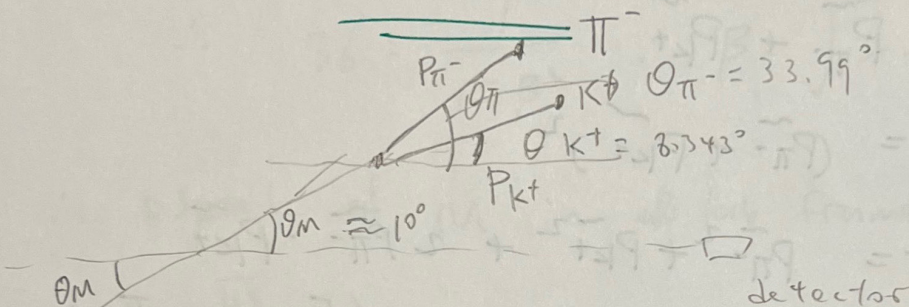 π⁻
Pπ⁻
θπ
K⁺ θπ⁻ = 33.99°
θ K⁺ = 8.343°
PK⁺
θM ≈ 10°
θM
detector